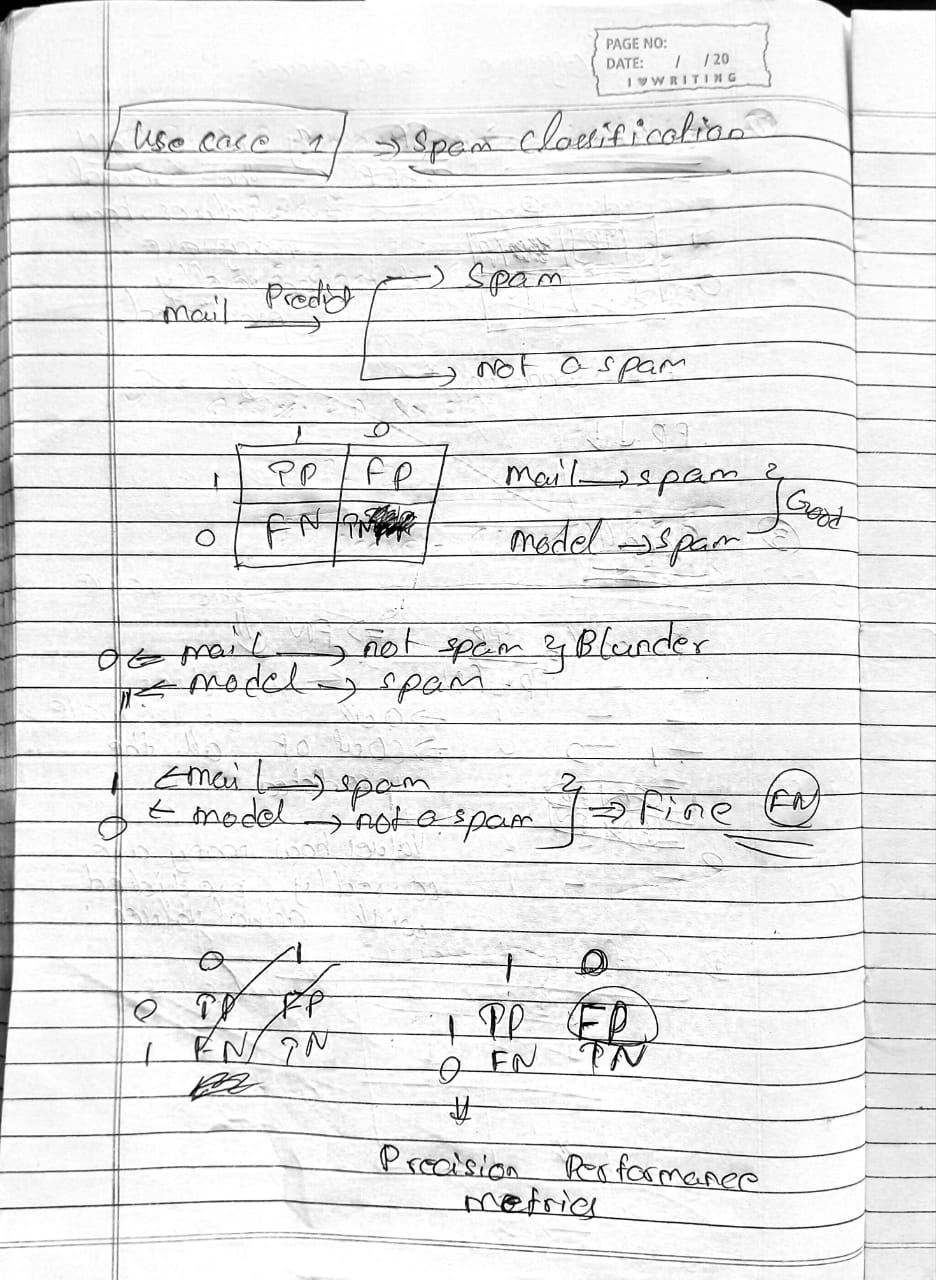 PAGE NO:
DATE: / /20
I ♥ WRITING
Use case 1 → Spam Classification
mail Predict → Spam
→ not a spam
1 0
1 TP FP
0 FN TN
mail → spam } Good
model → spam
0 ← mail → not spam } Blunder
1 ← model → spam
1 ← mail → spam
0 ← model → not a spam } ⇒ Fine FN
0 1
0 TP FP
1 FN TN
1 0
1 TP FP
0 FN TN
Precision Performance
metrics